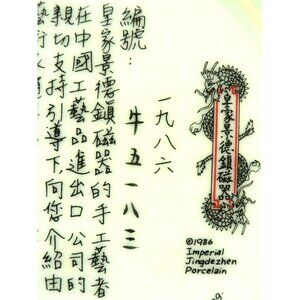 皇家景德鎮磁器
©1986
Imperial
Jingdezhen
Porcelain
一九八六
牛五一八三
編號:
皇家景德鎮磁器的手工藝者
在中國工藝品進出口公司的
親切支持引導下,向您介紹由
藝術家